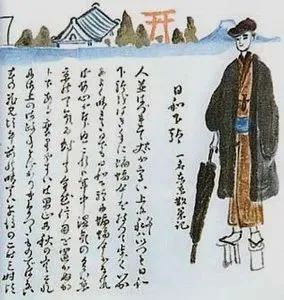 日和下駄 一名東京散策記
人並はづれて丈が高い上に私はいつも日和
下駄をはき蝙蝠傘を持って歩く いか
に好く晴れた日でも日和下駄に蝙蝠傘でなけれ
ば安心がならぬ 此は年中湿気の多い東京の
天気に対して全然信用を置かぬか
らである 変り易いは男心に秋の空 それに
お上の御政事とばかり極ったものではない
春の花見頃午前の晴天は午後の二時三時頃